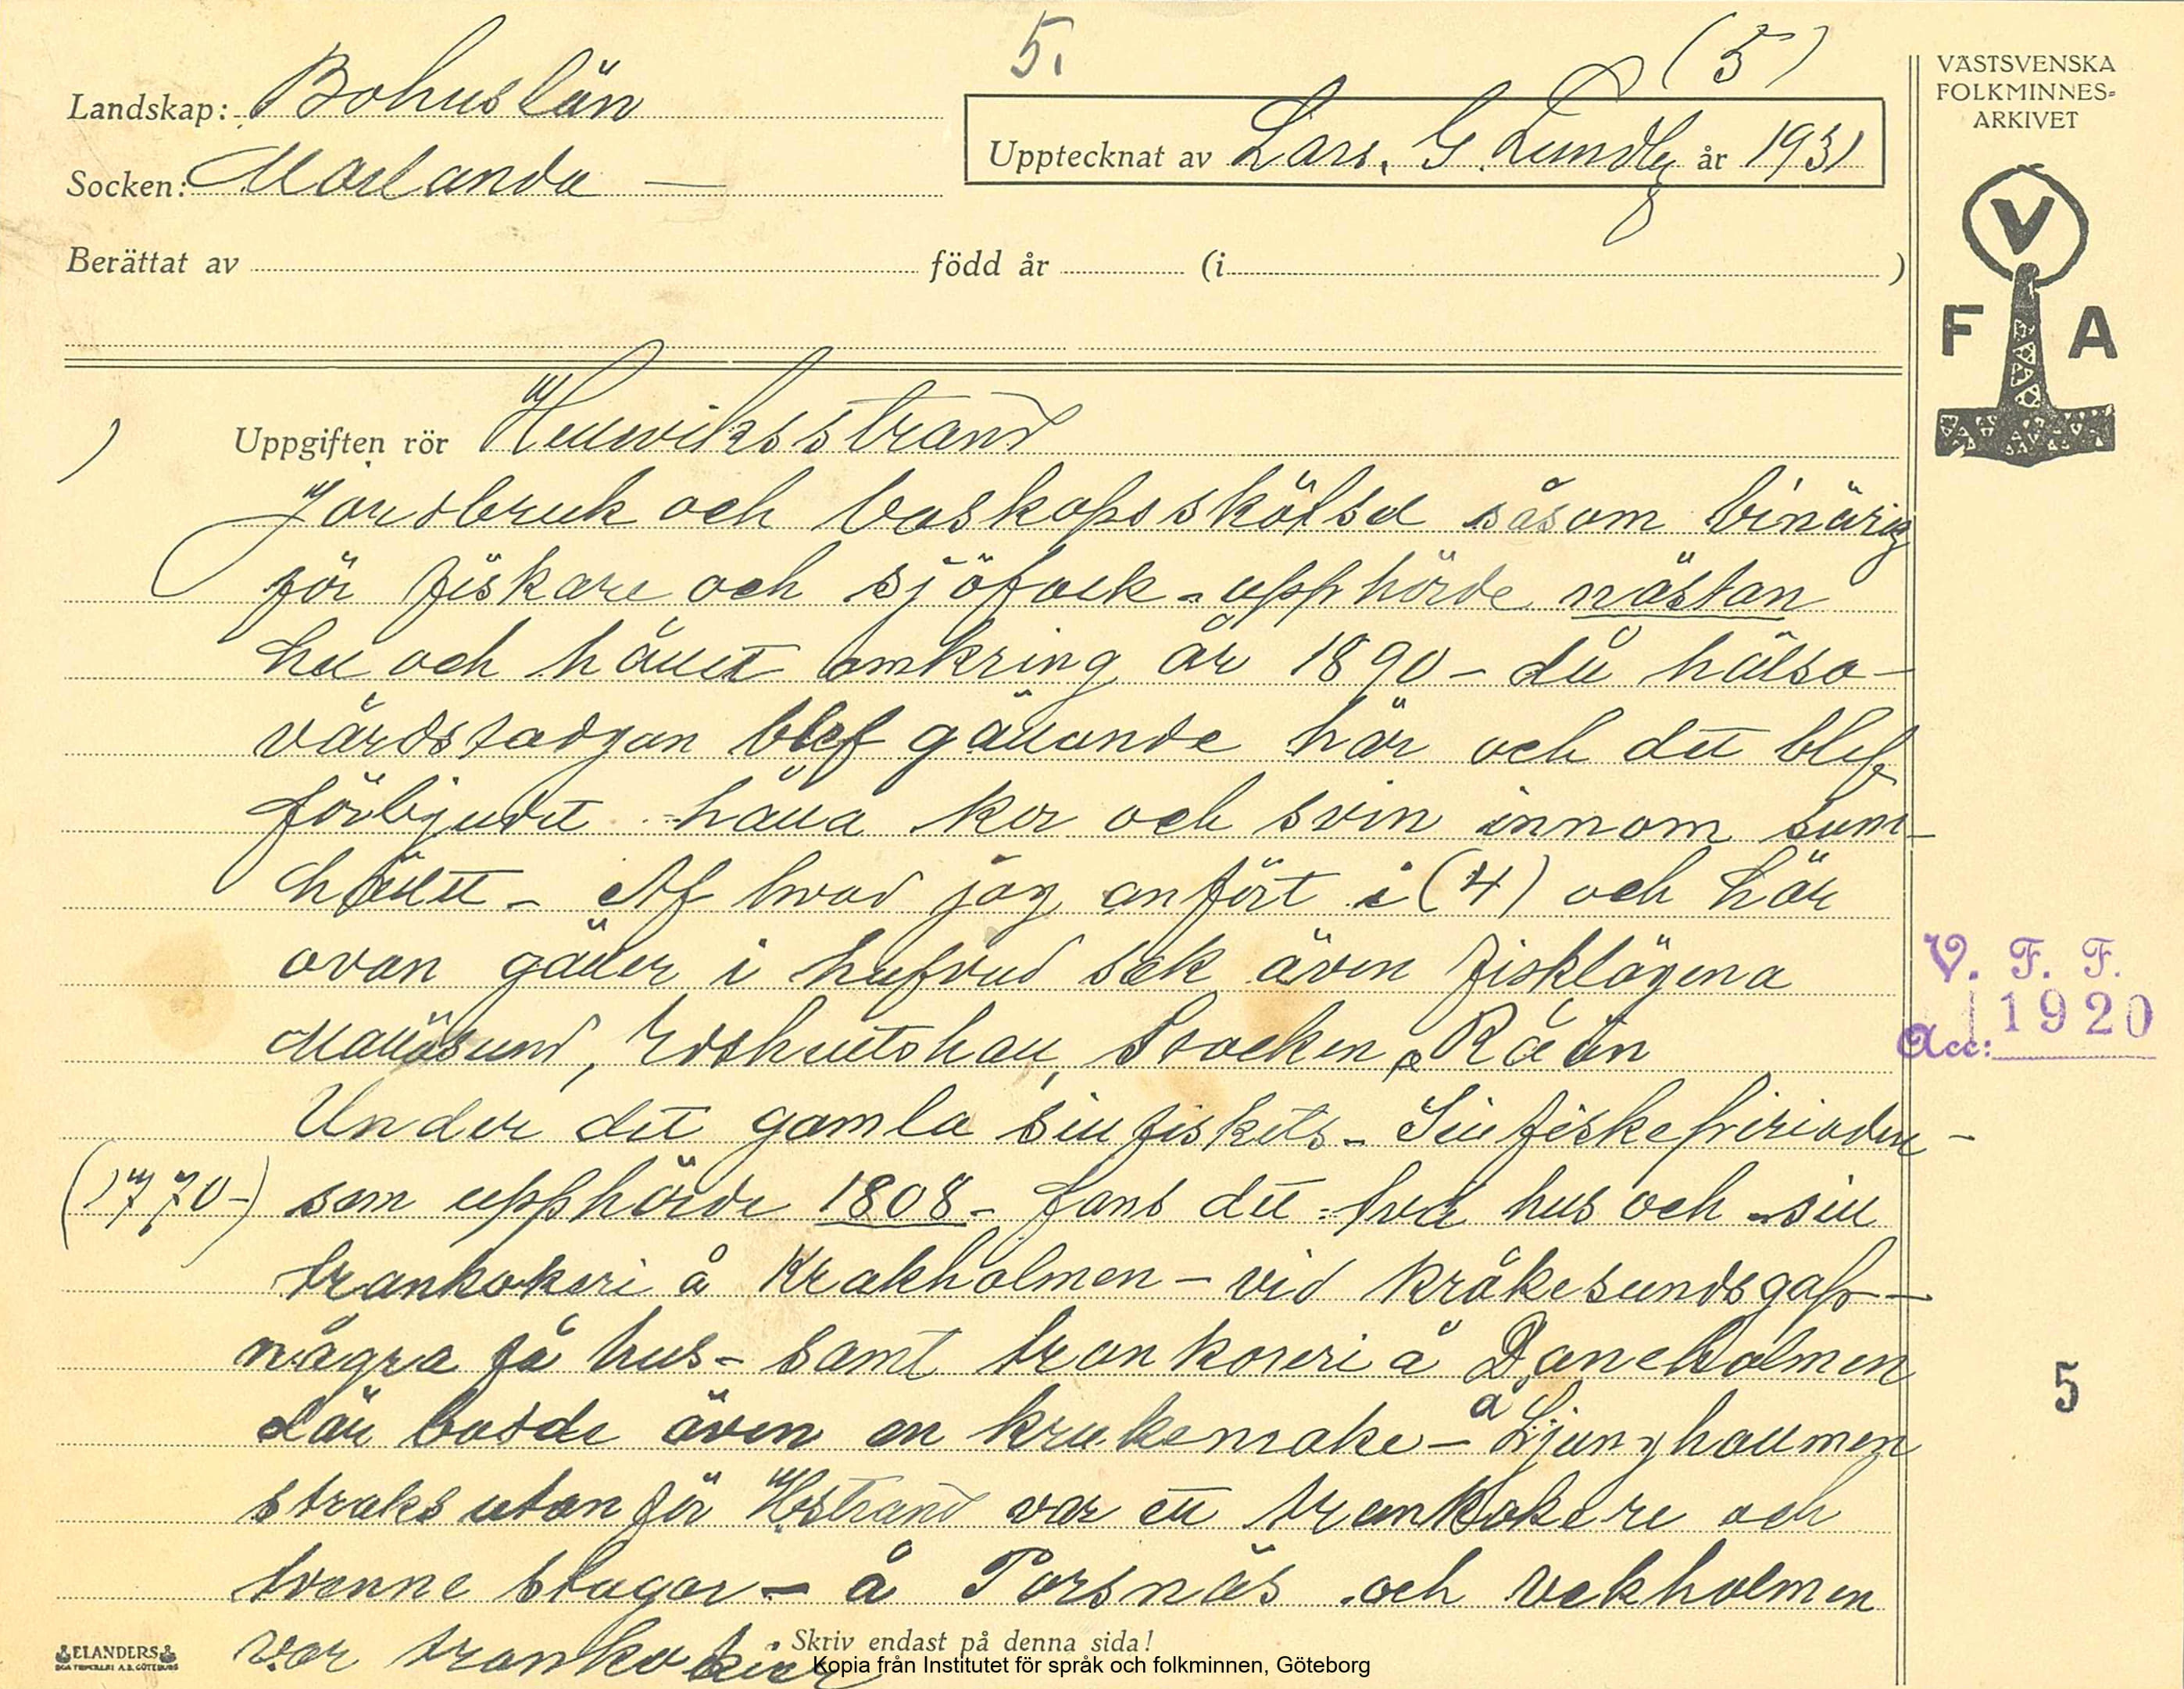 5.
(5)
Landskap: Bohuslän
Upptecknat av Lars. G. Lundby år 1931
Socken: Morlanda —
Berättat av född år (i )
VÄSTSVENSKA
FOLKMINNES-
ARKIVET
V
F A
) Uppgiften rör Hellwiksstrand
Jordsbruk och boskapsskötsel såsom binärig
för fiskare och sjöfolk - upphörde nästan
hel och hållet omkring år 1890 - då hälso-
vårdstadgan blef gällande här och det blef
förbjudet hålla kor och svin innom sam-
hället - Af hvad jag anfört i (4) och här
ovan gäller i hufvud sak även fisklägena
Mollösund, Edshultshall, Stocken & Råön
Under det gamla sillfiskets - Sillfiskeperioden -
(1770-) som upphörde 1808 - fans det två hus och sill
trankokeri å Krakholmen - vid Kråkesundsgap -
några få hus - samt trankoreri å Daneholmen
där bodde även en krukemake - å Ljungholmen
straks utanför Hstrand var ett trankokere och
tvenne stugor - å Torsnäs och vekholmen
var trankokier
V. F. F.
Acc: 1920
5
ELANDERS
Skriv endast på denna sida!
Kopia från Institutet för språk och folkminnen, Göteborg